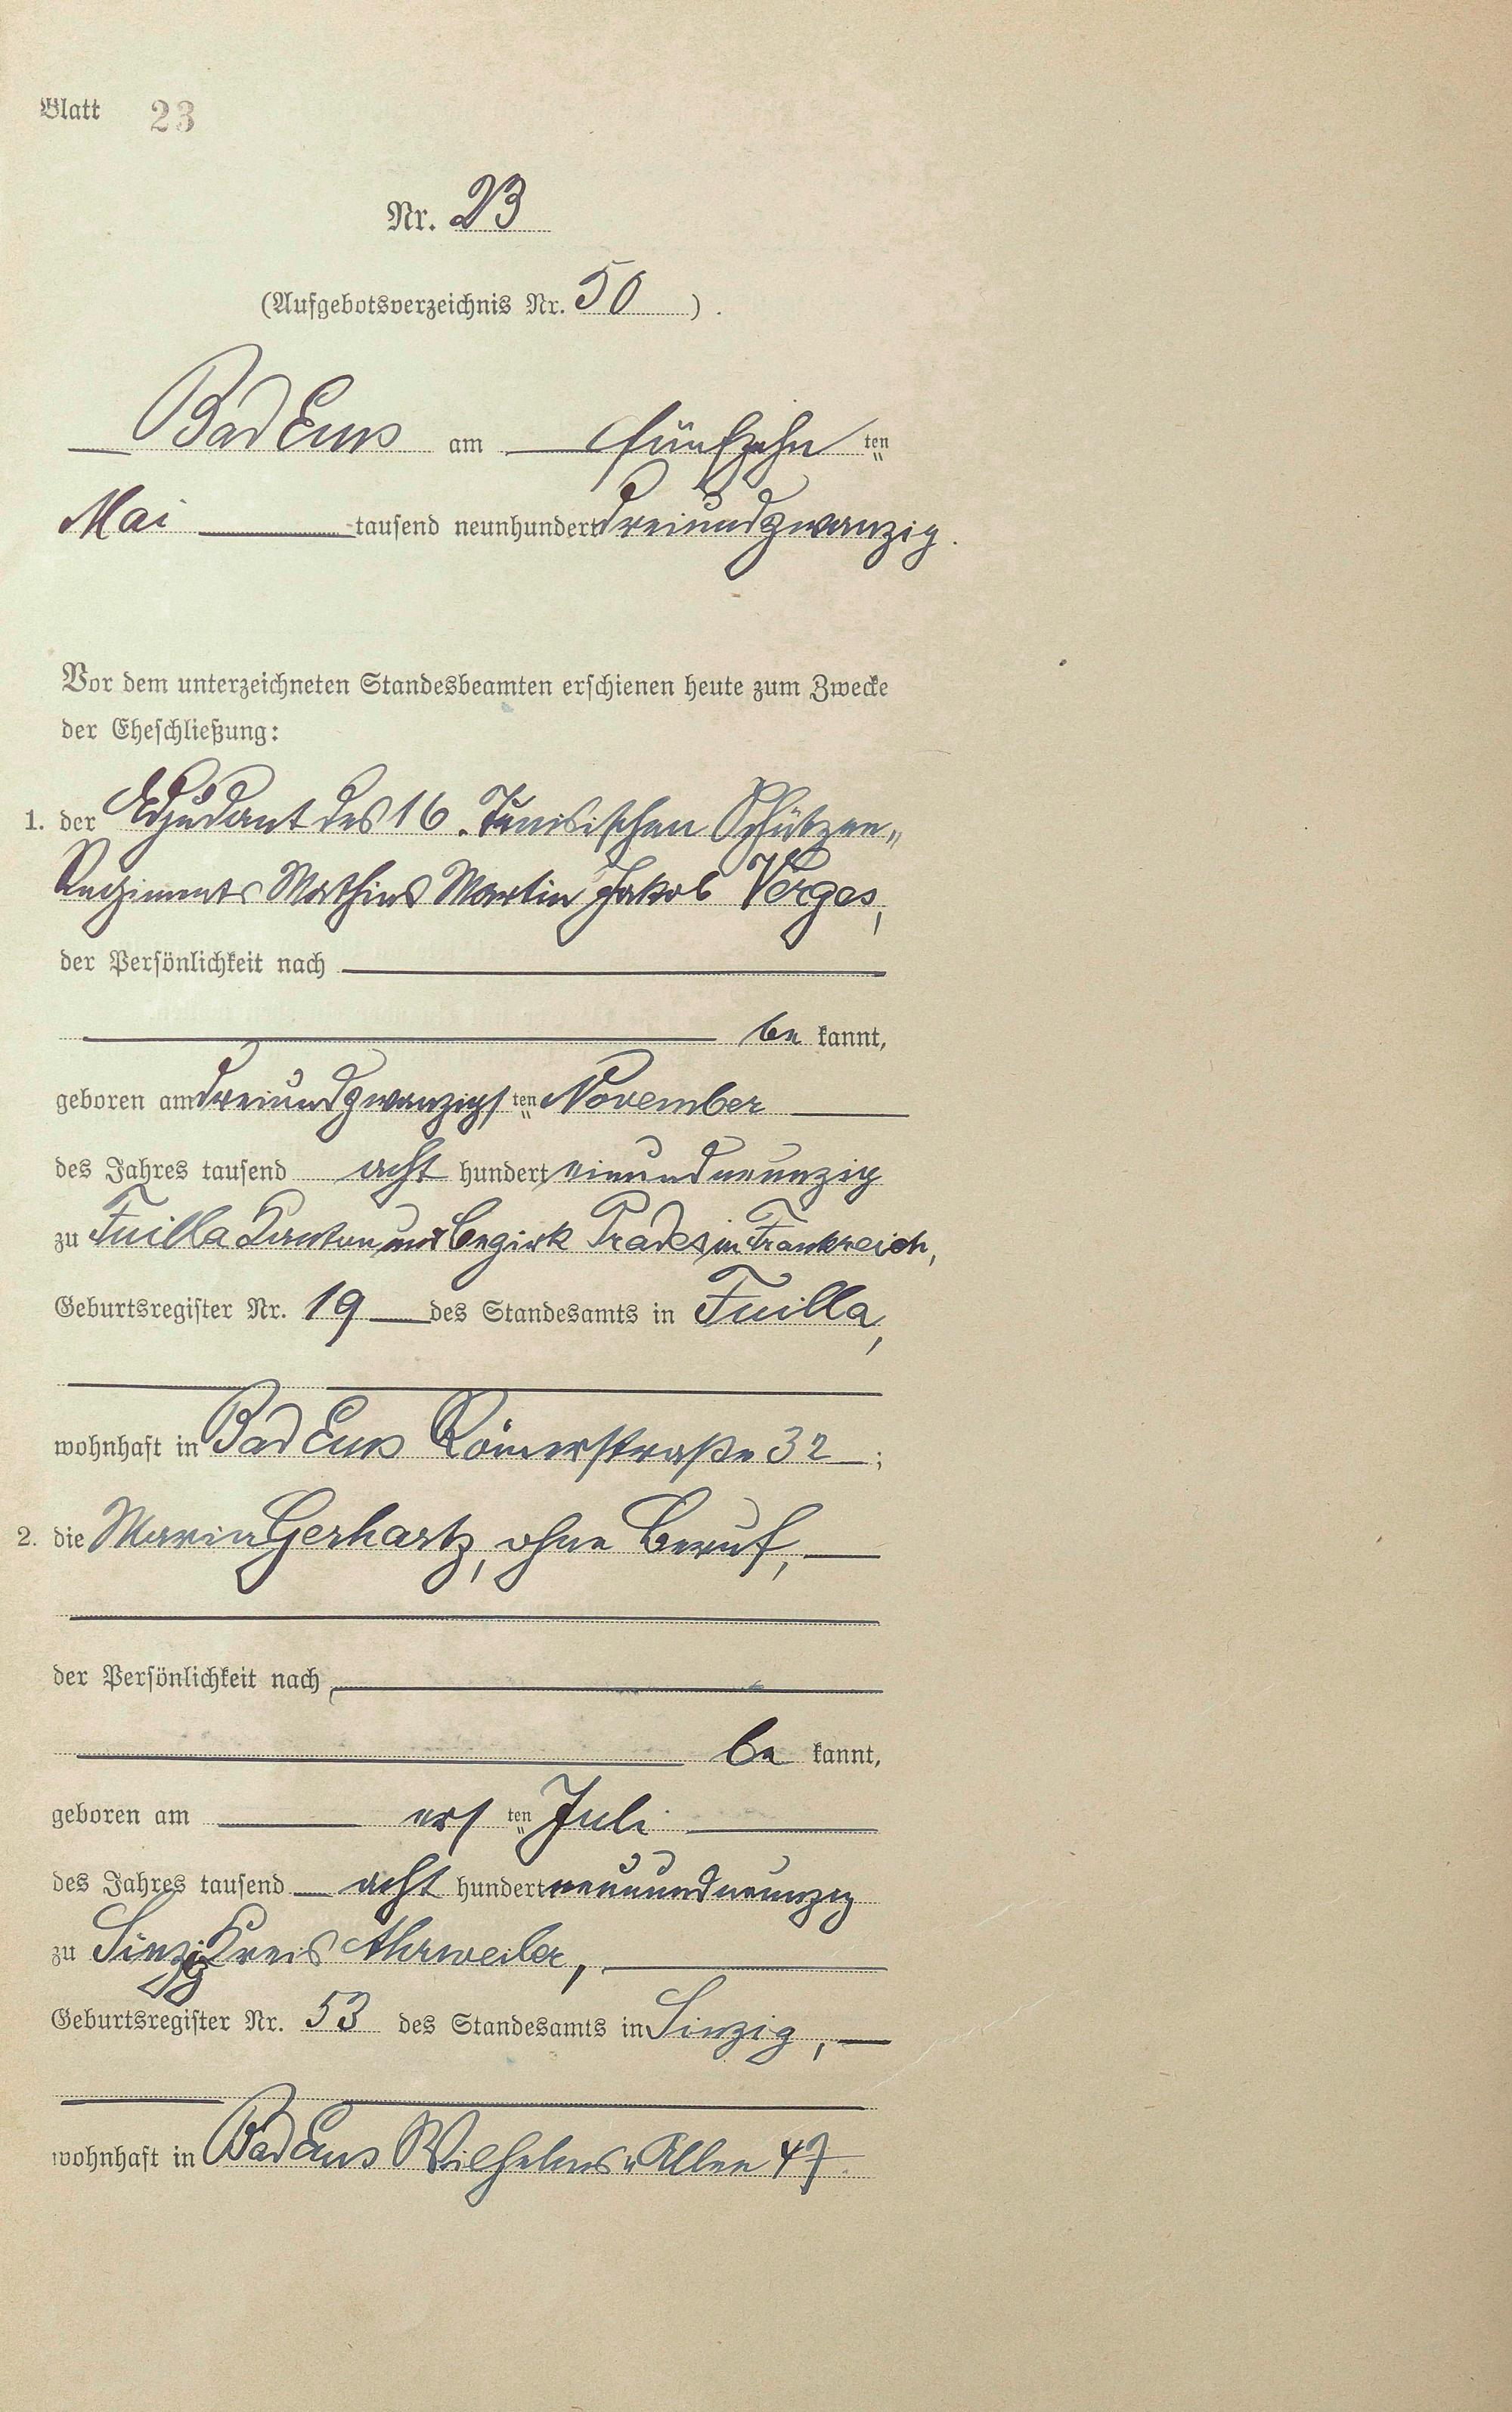 Blatt 23
Nr. 23
(Aufgebotsverzeichnis Nr. 50).
Bad Ems am fünfzehn ten
Mai tausend neunhundert dreiundzwanzig.
Vor dem unterzeichneten Standesbeamten erschienen heute zum Zwecke
der Eheschließung:
1. der Adjudant des 16. Tunisischen Schützen„
Regiments Mathias Martin Jakob Verges,
der Persönlichkeit nach
be kannt,
geboren am dreiundzwanzigs ten November
des Jahres tausend acht hundert einundneunzig
zu Fuilla Kanton und Bezirk Prades in Frankreich,
Geburtsregister Nr. 19 des Standesamts in Fuilla,
wohnhaft in Bad Ems Römerstraße 32;
2. die Maria Gerhartz, ohne Beruf,
der Persönlichkeit nach
be kannt,
geboren am ers ten Juli
des Jahres tausend acht hundert neunundneunzig
zu Sinzig Kreis Ahrweiler,
Geburtsregister Nr. 53 des Standesamts in Sinzig,
wohnhaft in Bad Ems Wilhelms„Allee 47.